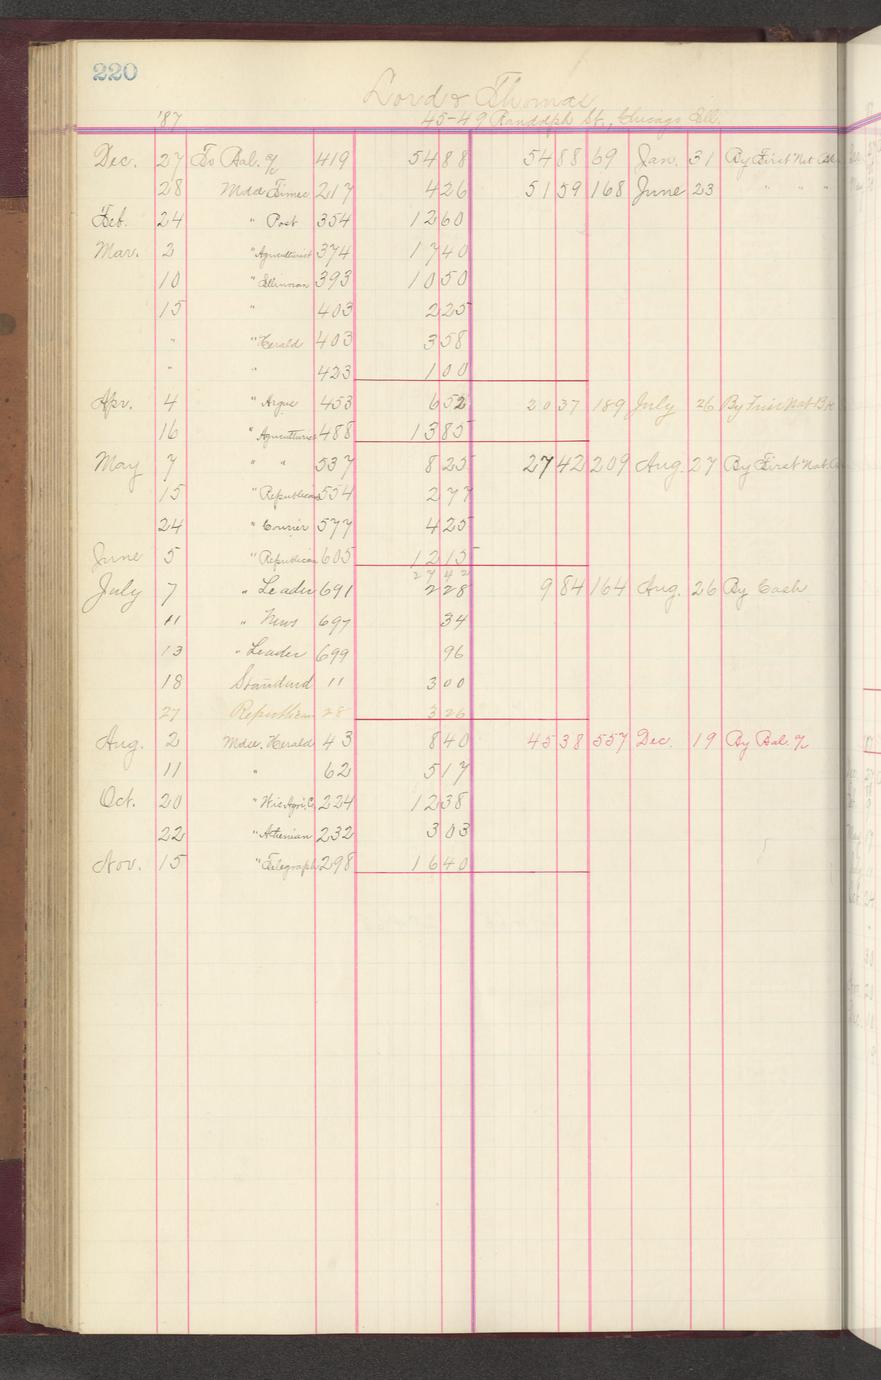 220
Lord & Thomas
'87 45-49 Randolph St., Chicago Ill.
Dec. 27 To Bal. % 419 54 88 54 88 69 Jan. 31 By First Nat
28 Mdse Times 217 4 26 51 59 168 June 23 " " "
Feb. 24 " Post 354 12 60
Mar. 2 " Agriculturist 374 17 40
10 " Illinoian 393 10 50
15 " 403 2 25
" " Herald 403 3 58
" " 423 1 00
Apr. 4 " Argus 453 6 52 20 37 189 July 26 By First Nat
16 " Agriculturist 488 13 85
May 7 " " 537 8 25 27 42 209 Aug. 27 By First Nat.
15 " Republican 554 2 77
24 " Courier 577 4 25
June 5 " Republican 605 12 15
27 42
July 7 " Leader 691 2 28 9 84 164 Aug. 26 By Cash
11 " News 697 34
13 " Leader 699 96
18 Standard 11 3 00
27 Republican 28 3 26
Aug. 2 Mdse. Herald 43 8 40 45 38 557 Dec. 19 By Bal. %
11 " 62 5 17
Oct. 20 " Wis Agri. 224 12 38
22 " Athenian 232 3 03
Nov. 15 " Telegraph 298 16 40